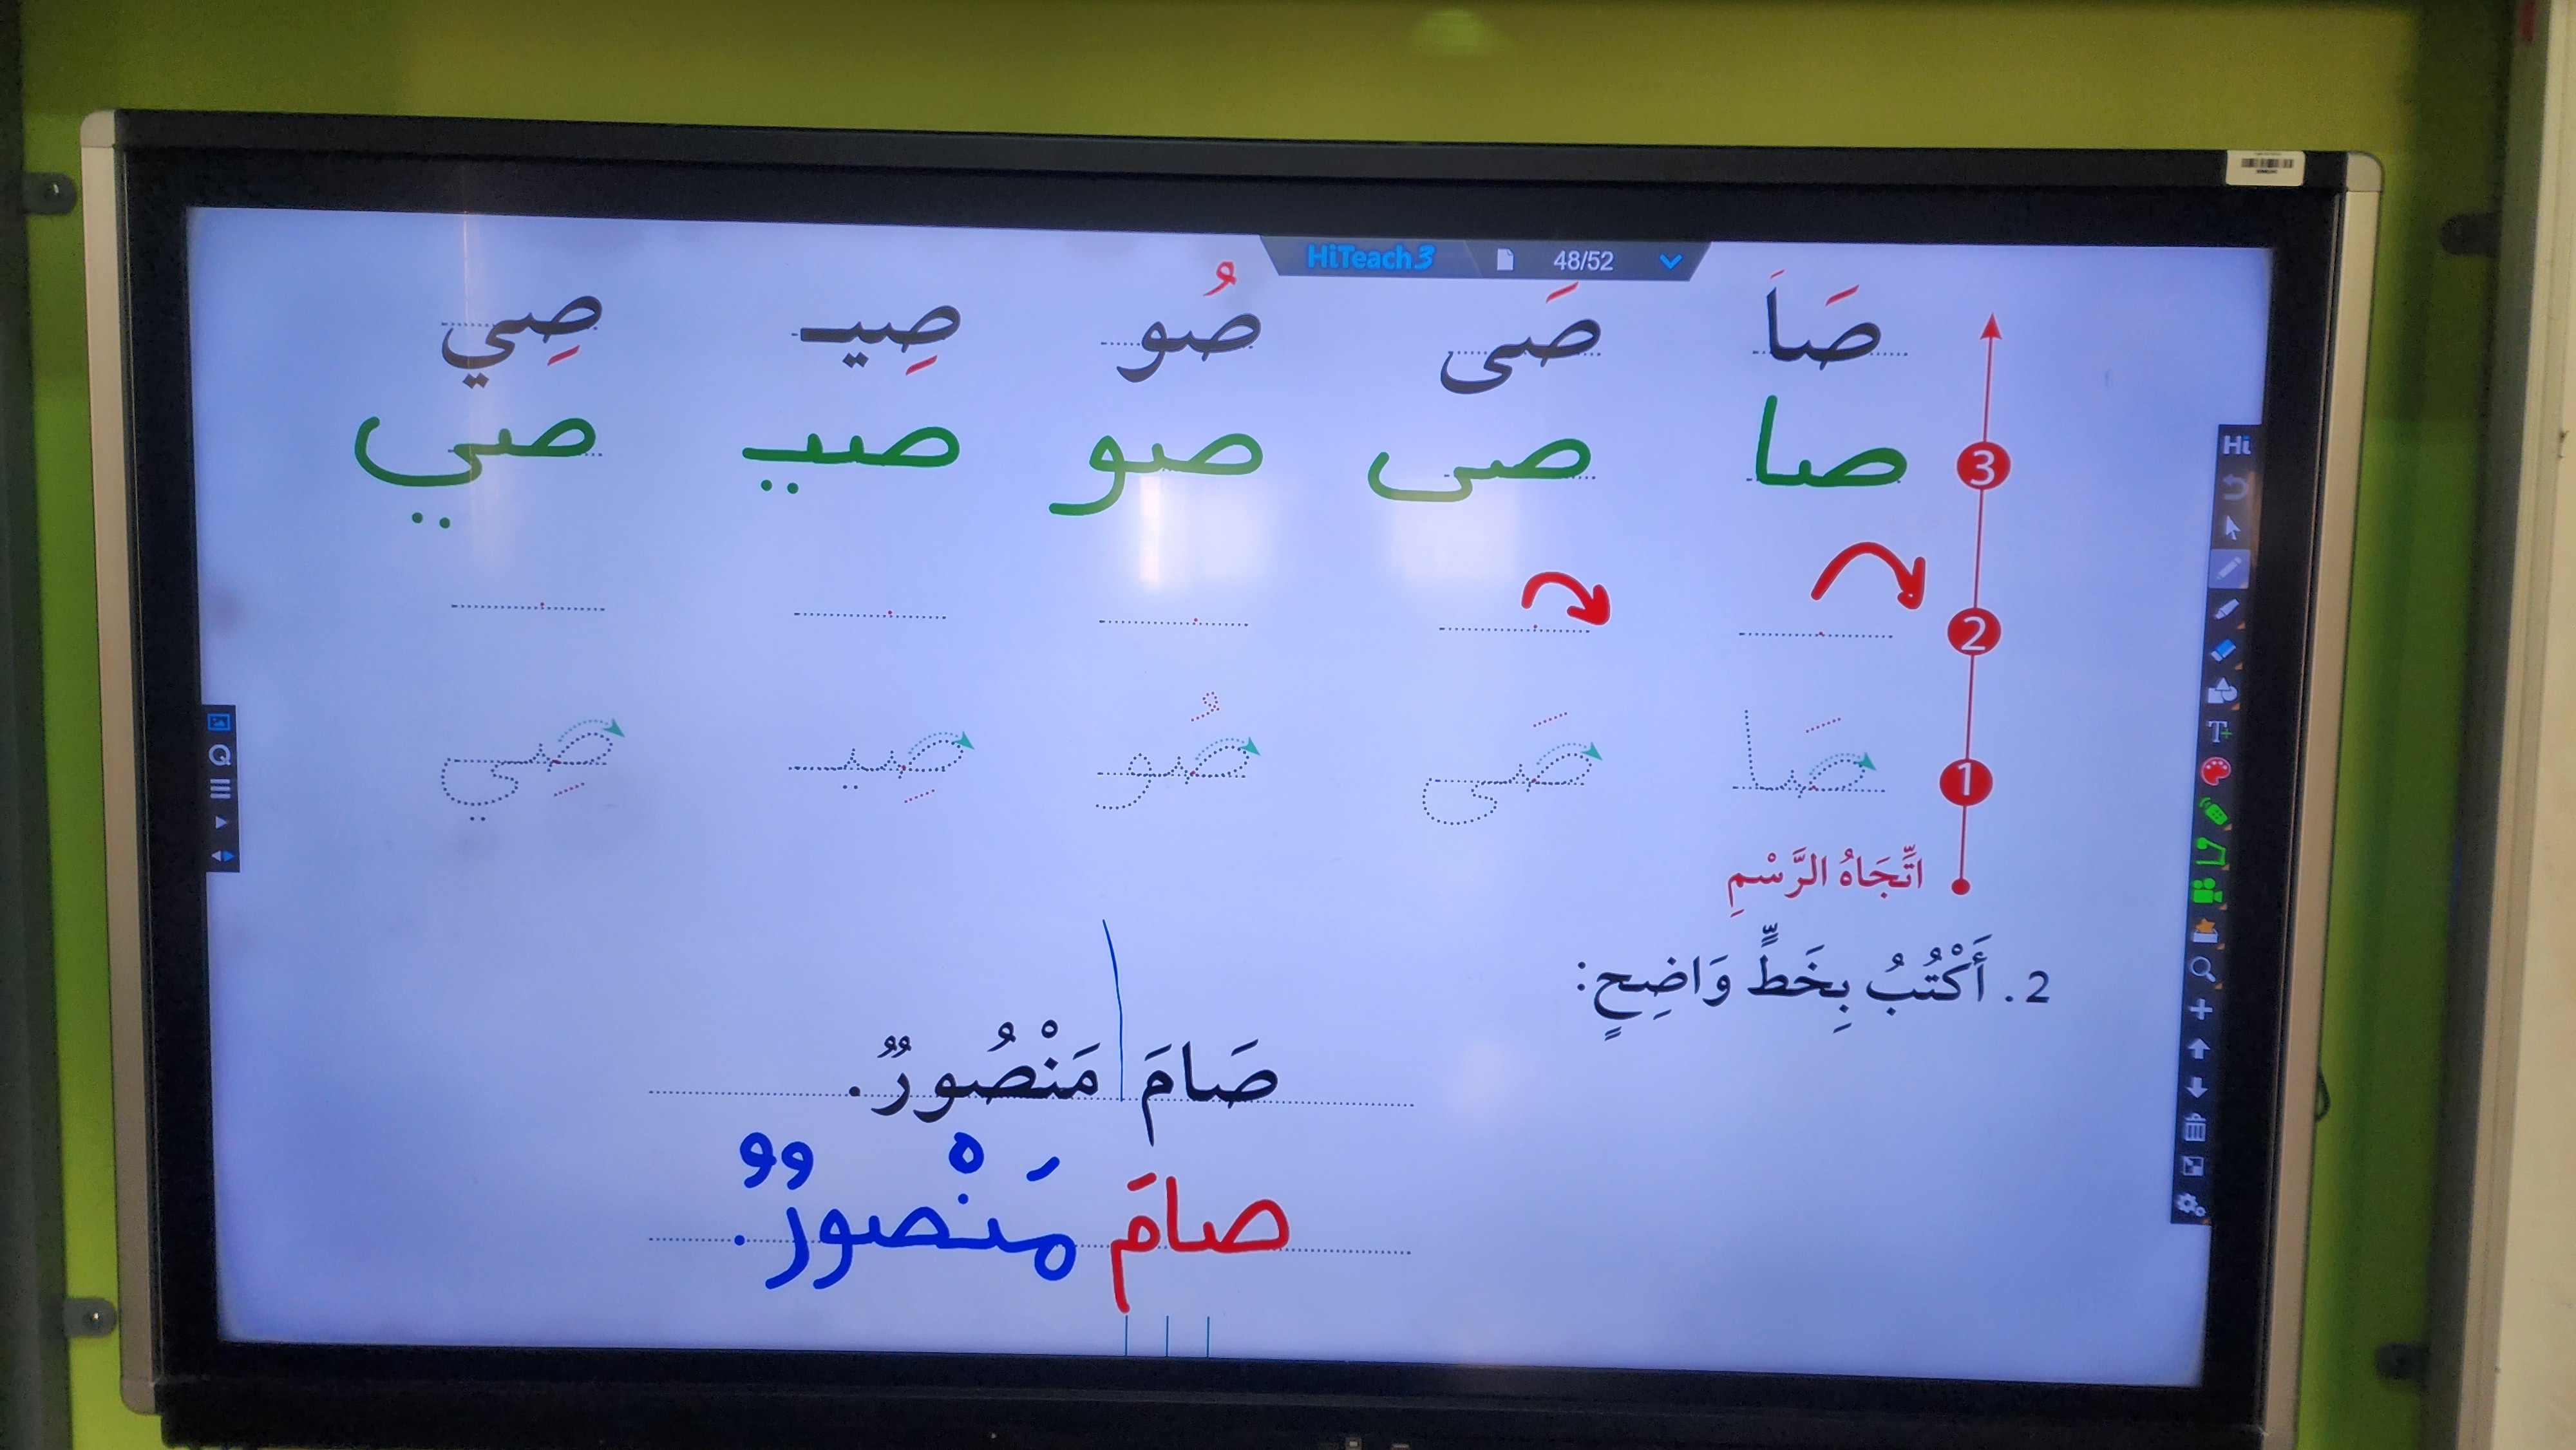 HiTeach3 48/52
صَاَ صَى صُو صِيـ صِي
3 صا صى صو صيـ صي
2
1 صَا صَى صُو صِيـ صِي
اتِّجَاهُ الرَّسْمِ
2. أَكْتُبُ بِخَطٍّ وَاضِحٍ:
صَامَ مَنْصُورٌ.
صامَ مَنْصورٌ.
Hi
T+